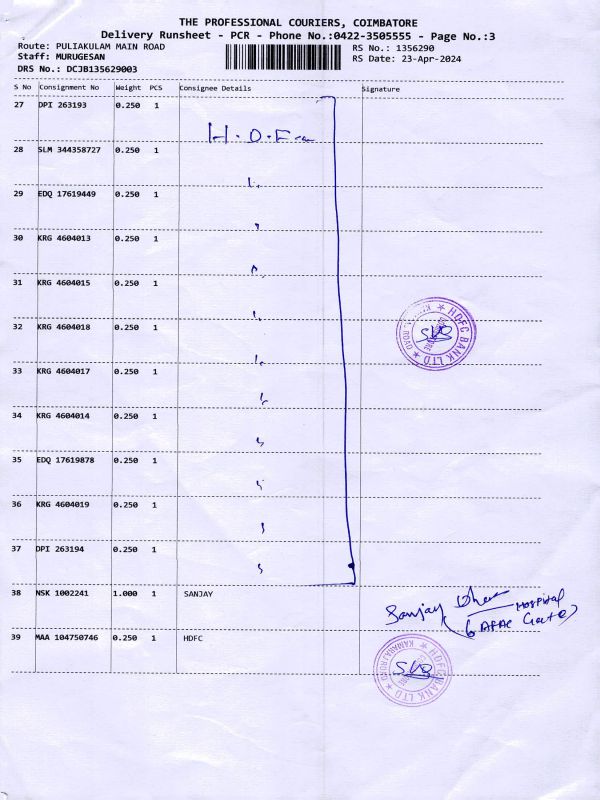 THE PROFESSIONAL COURIERS, COIMBATORE
Delivery Runsheet - PCR - Phone No.:0422-3505555 - Page No.:3
Route: PULIAKULAM MAIN ROAD
RS No.: 1356290
Staff: MURUGESAN
RS Date: 23-Apr-2024
DRS No.: DCJB135629003
S No Consignment No Weight PCS Consignee Details Signature
27 DPI 263193 0.250 1
H.D.F
28 SLM 344358727 0.250 1
29 EDQ 17619449 0.250 1
30 KRG 4604013 0.250 1
31 KRG 4604015 0.250 1
32 KRG 4604018 0.250 1
HDFC BANK LTD
SVS
33 KRG 4604017 0.250 1
34 KRG 4604014 0.250 1
35 EDQ 17619878 0.250 1
36 KRG 4604019 0.250 1
37 DPI 263194 0.250 1
38 NSK 1002241 1.000 1 SANJAY
Sanjay
Hospital
Gate)
39 MAA 104750746 0.250 1 HDFC
HDFC BANK LTD
KAMARAJ ROAD
SVS